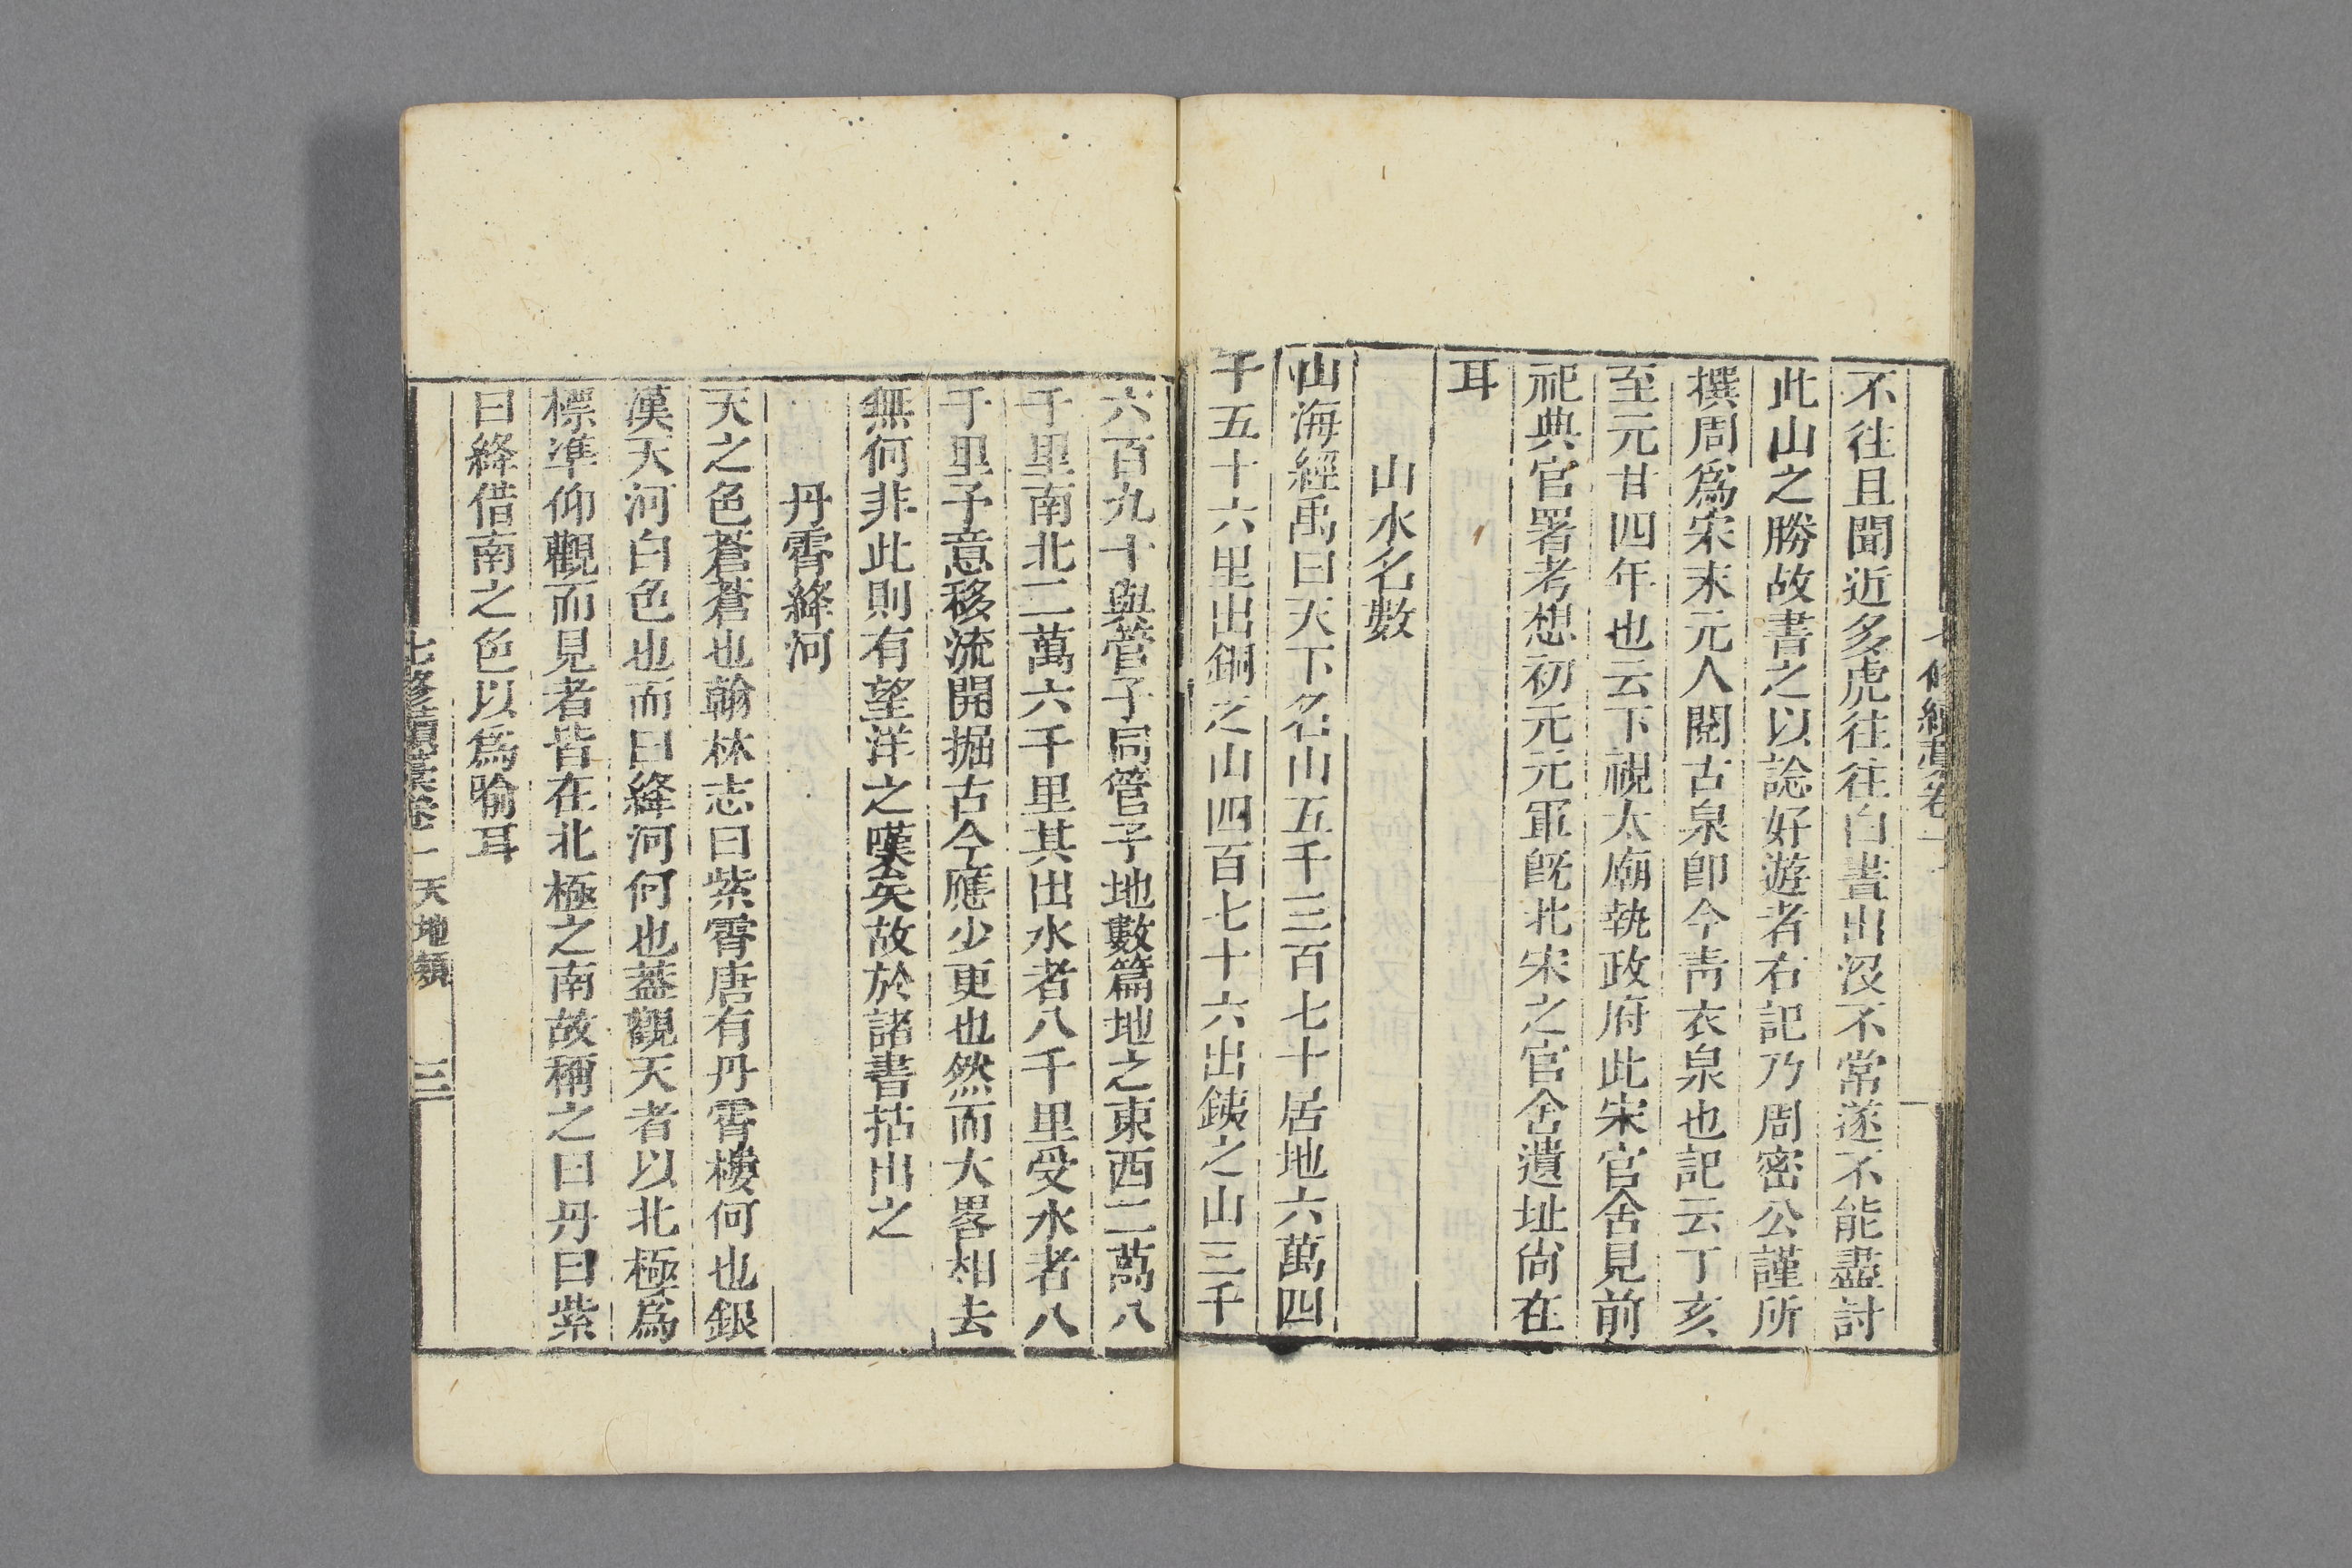 不往且聞近多虎往往白晝出沒不常遂不能盡討
此山之勝故書之以諗好遊者右記乃周密公謹所
撰周爲宋末元人閱古泉卽今靑衣泉也記云丁亥
至元廿四年也云下視太廟執政府此宋官舍見前
祀典官署考想初元元軍旣北宋之官舍遺址尙在
耳
山水名數
山海經禹曰天下名山五千三百七十居地六萬四
千五十六里出銅之山四百七十六出鉄之山三千
六百九十與管子同管子地數篇地之東西二萬八
千里南北二萬六千里其出水者八千里受水者八
千里予意移流開掘古今應少更也然而大畧相去
無何非此則有望洋之嘆矣故於諸書拈出之
丹霄絳河
天之色蒼蒼也翰林志曰紫霄唐有丹霄樓何也銀
漢天河白色也而曰絳河何也蓋觀天者以北極爲
標準仰觀而見者皆在北極之南故稱之曰丹曰紫
曰絳借南之色以爲喻耳
七修類藁卷一 天地類 三